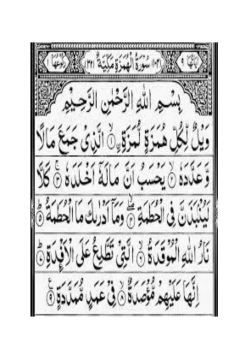 سُوْرَةُ الْهُمَزَةِ مَكِّيَّةٌ
بِسْمِ اللهِ الرَّحْمٰنِ الرَّحِيْمِ
وَيْلٌ لِّكُلِّ هُمَزَةٍ لُّمَزَةِۙ ۝۱ الَّذِىْ جَمَعَ مَالًا
وَّعَدَّدَهٗۙ ۝۲ يَحْسَبُ اَنَّ مَالَهٗۤ اَخْلَدَهٗۚ ۝۳ كَلَّا
لَيُنْۢبَذَنَّ فِى الْحُطَمَةِۖ ۝۴ وَمَاۤ اَدْرٰىكَ مَا الْحُطَمَةُؕ ۝۵
نَارُ اللهِ الْمُوْقَدَةُۙ ۝۶ الَّتِىْ تَطَّلِعُ عَلَى الْاَفْـِٕدَةِؕ ۝۷
اِنَّهَا عَلَيْهِمْ مُّؤْصَدَةٌۙ ۝۸ فِىْ عَمَدٍ مُّمَدَّدَةٍ ۝۹